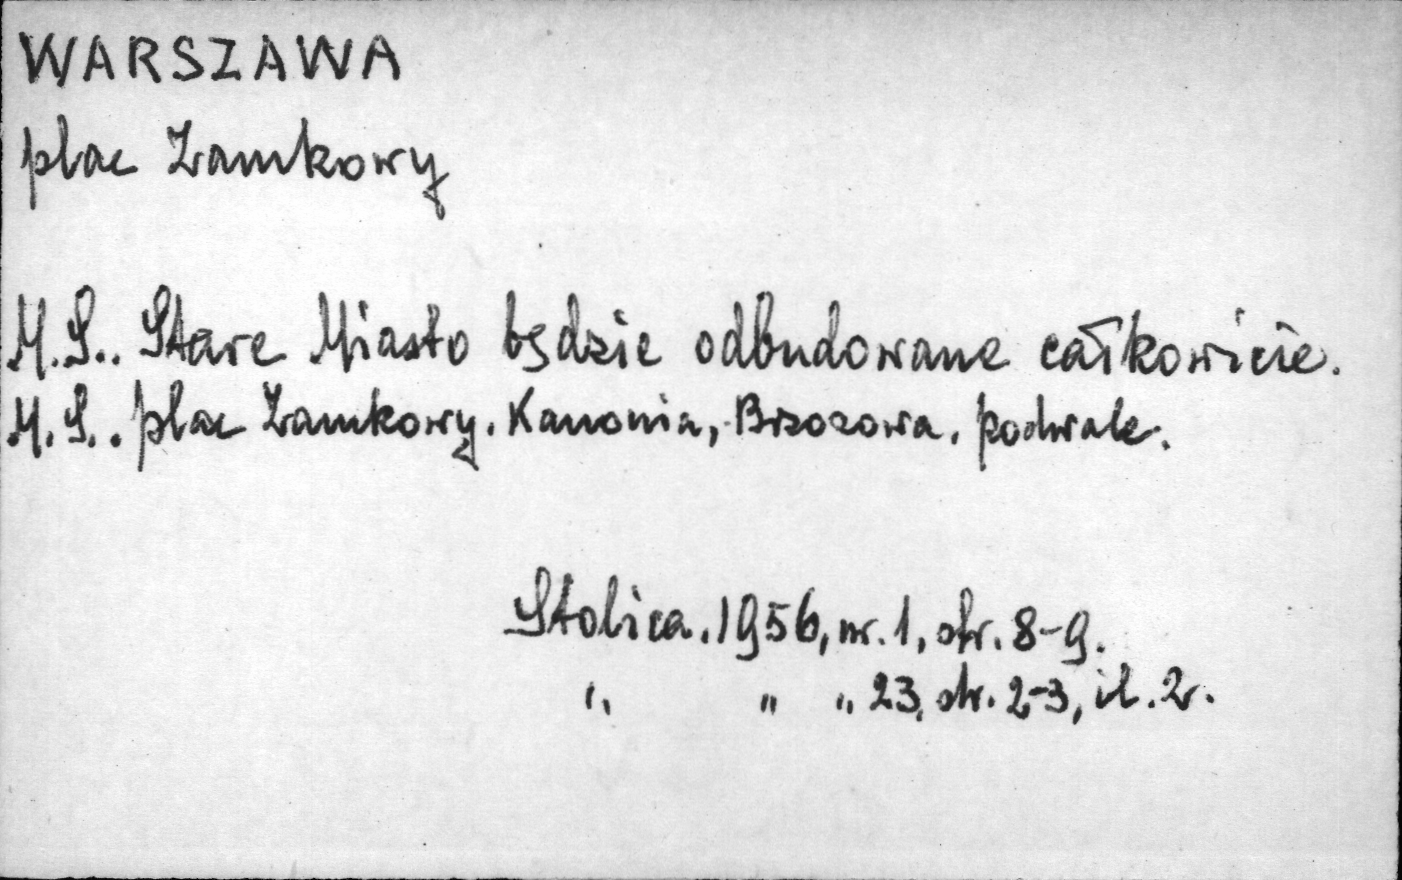 WARSZAWA
plac Zamkowy
M.S.. Stare Miasto będzie odbudowane całkowicie.
M.S.. plac Zamkowy. Kanonia, Brzozowa, podwale.
Stolica. 1956, nr. 1, str. 8-9.
" " " 23, str. 2-3, il. 2.